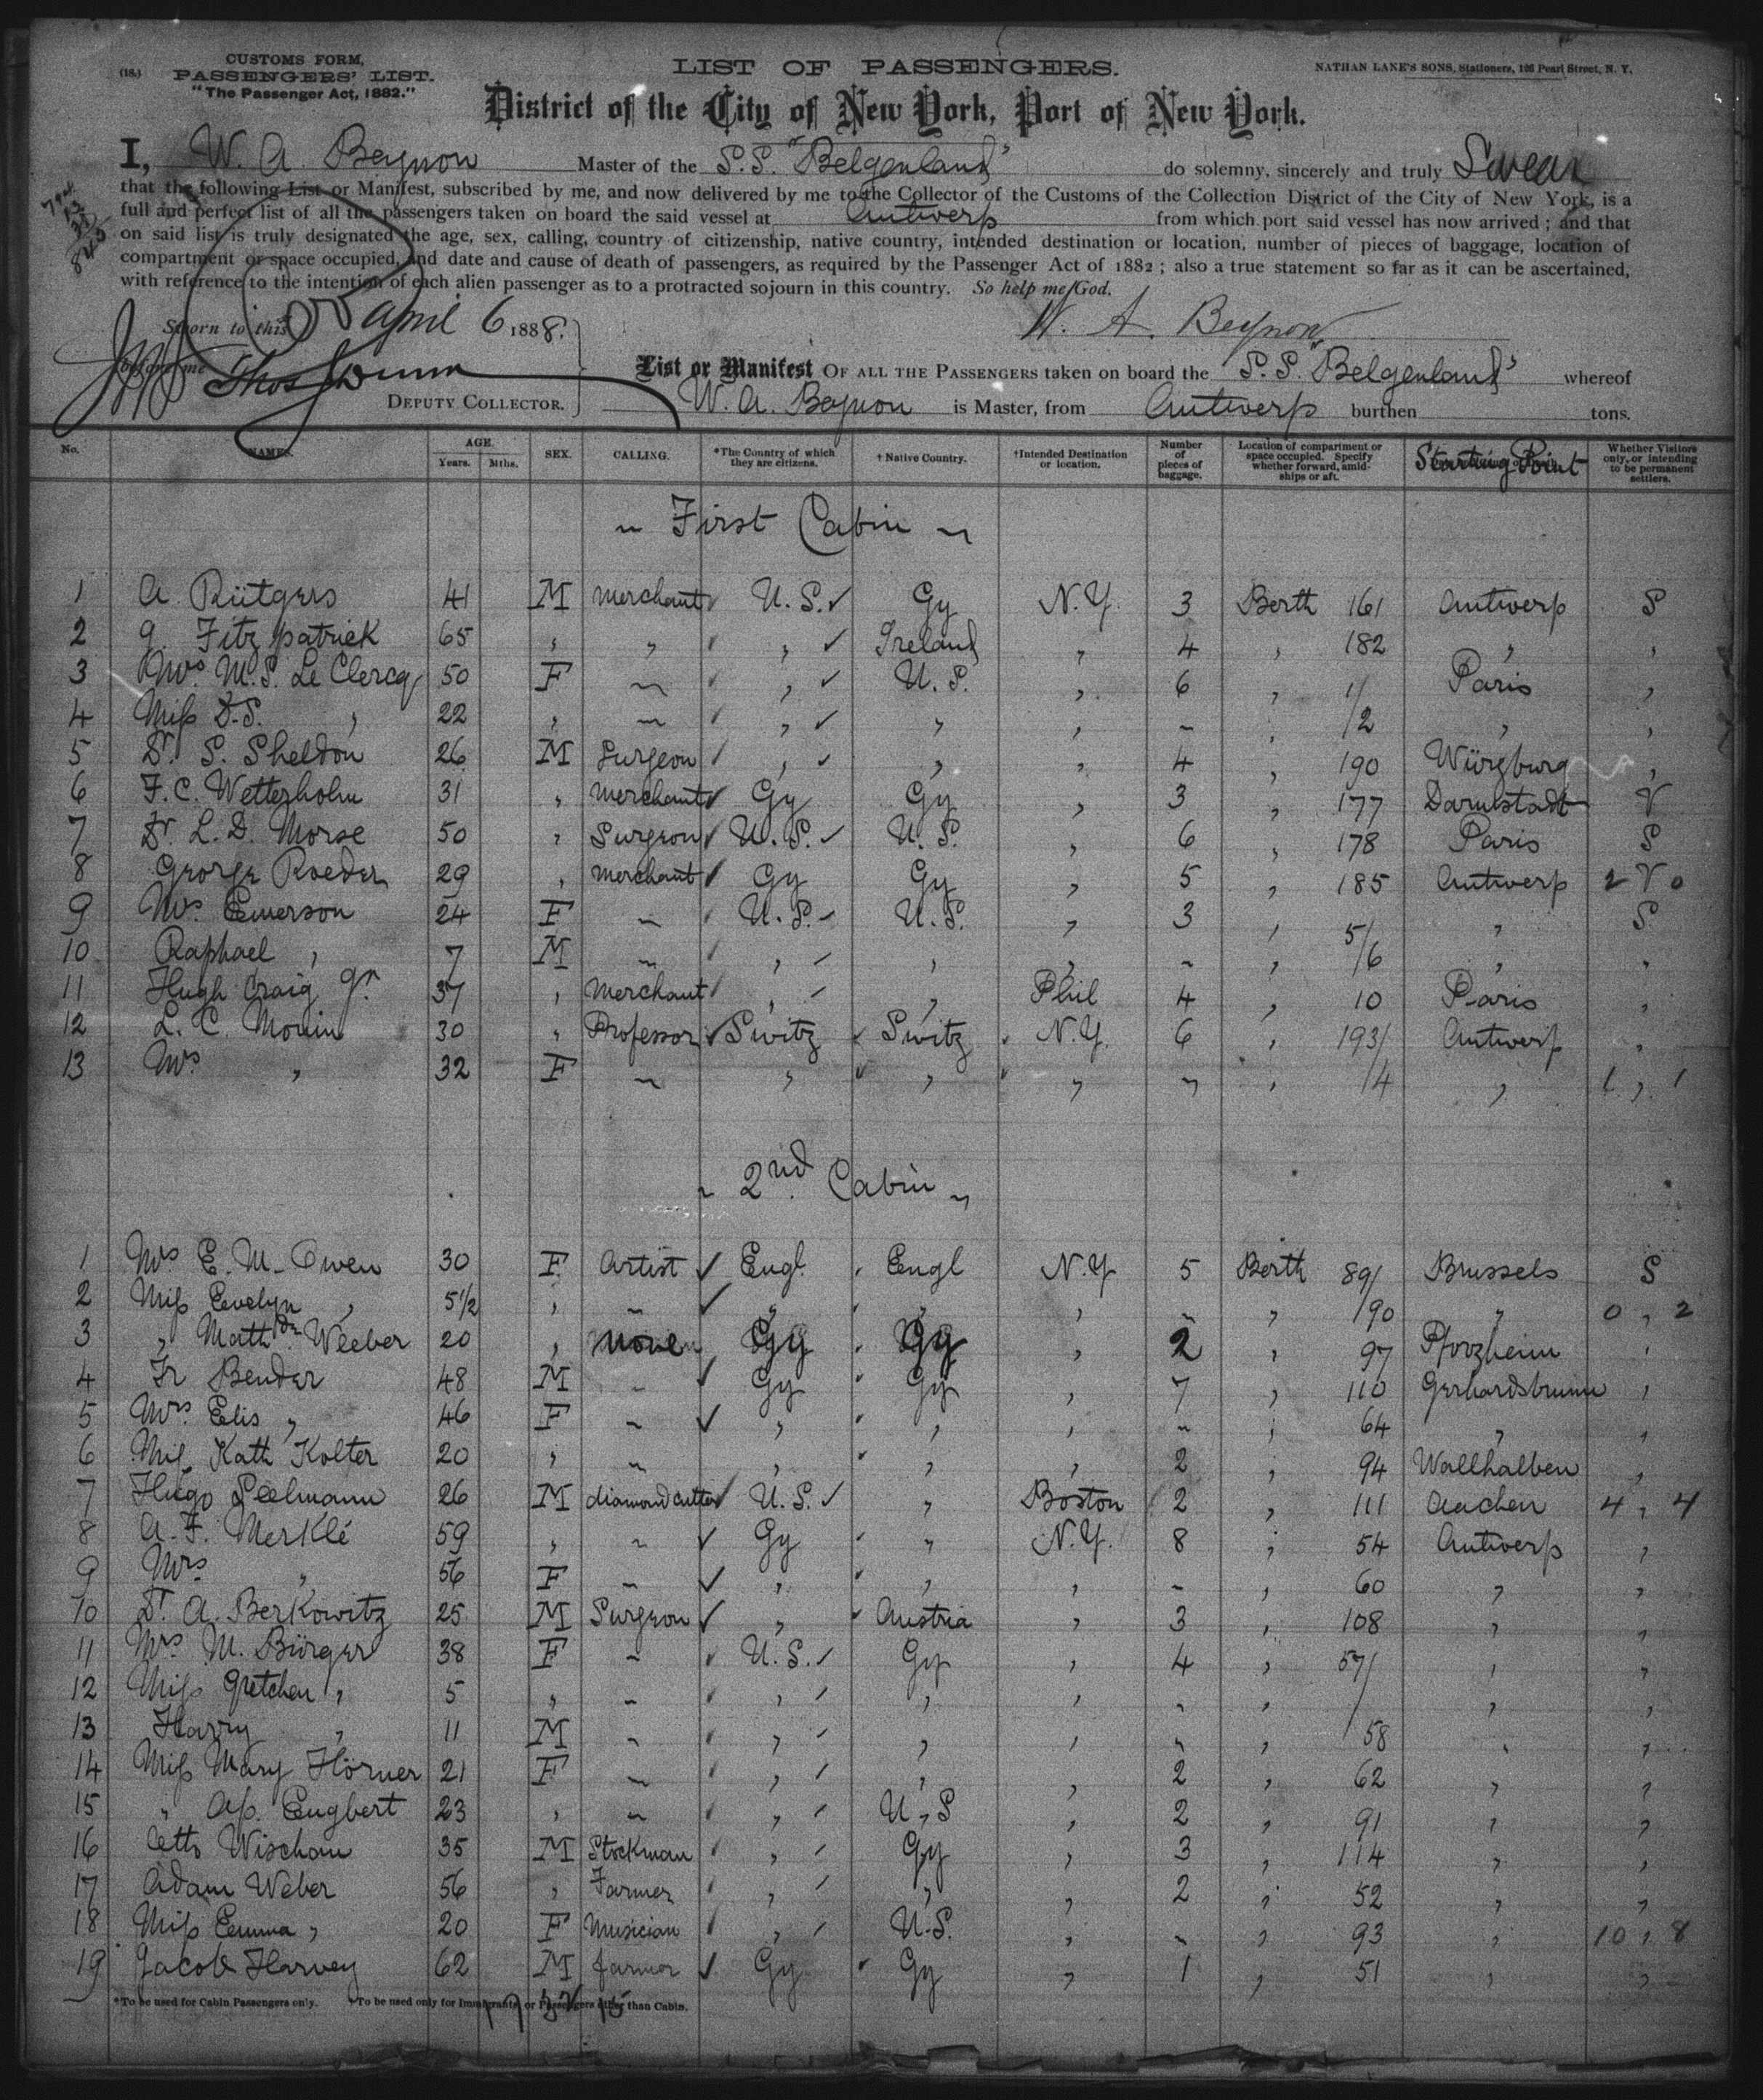 CUSTOMS FORM,
(18.) PASSENGERS' LIST.
"The Passenger Act, 1882."
LIST OF PASSENGERS.
NATHAN LANE'S SONS, Stationers, 126 Pearl Street, N. Y.
District of the City of New York, Port of New York.
I, W. A. Beynon Master of the S.S. "Belgenland" do solemny, sincerely and truly Swear
that the following List or Manifest, subscribed by me, and now delivered by me to the Collector of the Customs of the Collection District of the City of New York, is a
full and perfect list of all the passengers taken on board the said vessel at Antwerp from which port said vessel has now arrived ; and that
on said list is truly designated the age, sex, calling, country of citizenship, native country, intended destination or location, number of pieces of baggage, location of
compartment or space occupied, and date and cause of death of passengers, as required by the Passenger Act of 1882 ; also a true statement so far as it can be ascertained,
with reference to the intention of each alien passenger as to a protracted sojourn in this country. So help me God.
Sworn to this April 6 1888.
W. A. Beynon
before me Thos Dunn
DEPUTY COLLECTOR.
List or Manifest OF ALL THE PASSENGERS taken on board the S.S. "Belgenland" whereof
W. A. Beynon is Master, from Antwerp burthen tons.
No. NAMES. AGE. Years. Mths. SEX. CALLING. *The Country of which they are citizens. † Native Country. †Intended Destination or location. Number of pieces of baggage. Location of compartment or space occupied. Specify whether forward, amidships or aft. Starting Point Whether Visitors only, or intending to be permanent settlers.
~ First Cabin ~
1 A Rütgers 41 M Merchant U.S. Gy N.Y. 3 Berth 161 Antwerp S
2 G. Fitzpatrick 65 " " " Ireland " 4 " 182 " "
3 Mrs. M.S. Le Clercq 50 F ~ " U.S. " 6 " 1/ Paris "
4 Miss D.S. " 22 " ~ " " " ~ " /2 " "
5 Dr. S. Sheldon 26 M Surgeon " " " 4 " 190 Würzburg "
6 F.C. Wetterholm 31 " Merchant Gy Gy " 3 " 177 Darmstadt V
7 Dr. L.D. Morse 50 " Surgeon U.S. U.S. " 6 " 178 Paris S
8 George Roeder 29 " Merchant Gy Gy " 5 " 185 Antwerp 2 V 0
9 Mrs. Emerson 24 F ~ U.S. U.S. " 3 " 5/ " S
10 Raphael " 7 M ~ " " " ~ " /6 " "
11 Hugh Craig Jr. 37 " Merchant " " Phil 4 " 10 Paris "
12 L. C. Monin 30 " Professor Switz Switz N.Y. 6 " 193/ Antwerp "
13 Mrs " 32 F ~ " " " ~ " /4 " 1 " 1
~ 2nd. Cabin ~
1 Mrs E. M. Owen 30 F Artist Engl. Engl N.Y 5 Berth 89/ Brussels S
2 Miss Evelyn " 5 1/2 " ~ " " " ~ " /90 " 0 " 2
3 " Mathde Weeber 20 " None Gy Gy " 2 " 97 Pforzheim "
4 Fr Bender 48 M ~ Gy Gy " 7 " 110 Gerhardsbrunn "
5 Mrs. Elis " 46 F ~ " " " ~ " 64 " "
6 Miss Kath Kolter 20 " ~ " " " 2 " 94 Wallhalben "
7 Hugo Seelmann 26 M diamond cutter U.S. " Boston 2 " 111 Aachen 4 " 4
8 A. F. Merklé 59 " ~ Gy " N.Y. 8 " 54 Antwerp "
9 Mrs " 56 F ~ " " " ~ " 60 " "
10 Dr. A. Berkowitz 25 M Surgeon " Austria " 3 " 108 " "
11 Mrs M. Bürger 38 F ~ U.S. Gy " 4 " 57/ " "
12 Miss Gretchen " 5 " ~ " " " ~ " / " "
13 Harry " 11 M ~ " " " ~ " 58 " "
14 Miss Mary Hörner 21 F ~ " " " 2 " 62 " "
15 " Engbert 23 " ~ " U.S " 2 " 91 " "
16 Otto Wischan 35 M Stockman " Gy " 3 " 114 " "
17 Adam Weber 56 " Farmer " " " 2 " 52 " "
18 Miss Emma " 20 F Musician " U.S. " ~ " 93 " 10 " 8
19 Jacob Harvey 62 M farmer Gy Gy " 1 " 51 " "
*To be used for Cabin Passengers only. †To be used only for Immigrants or Passengers other than Cabin.